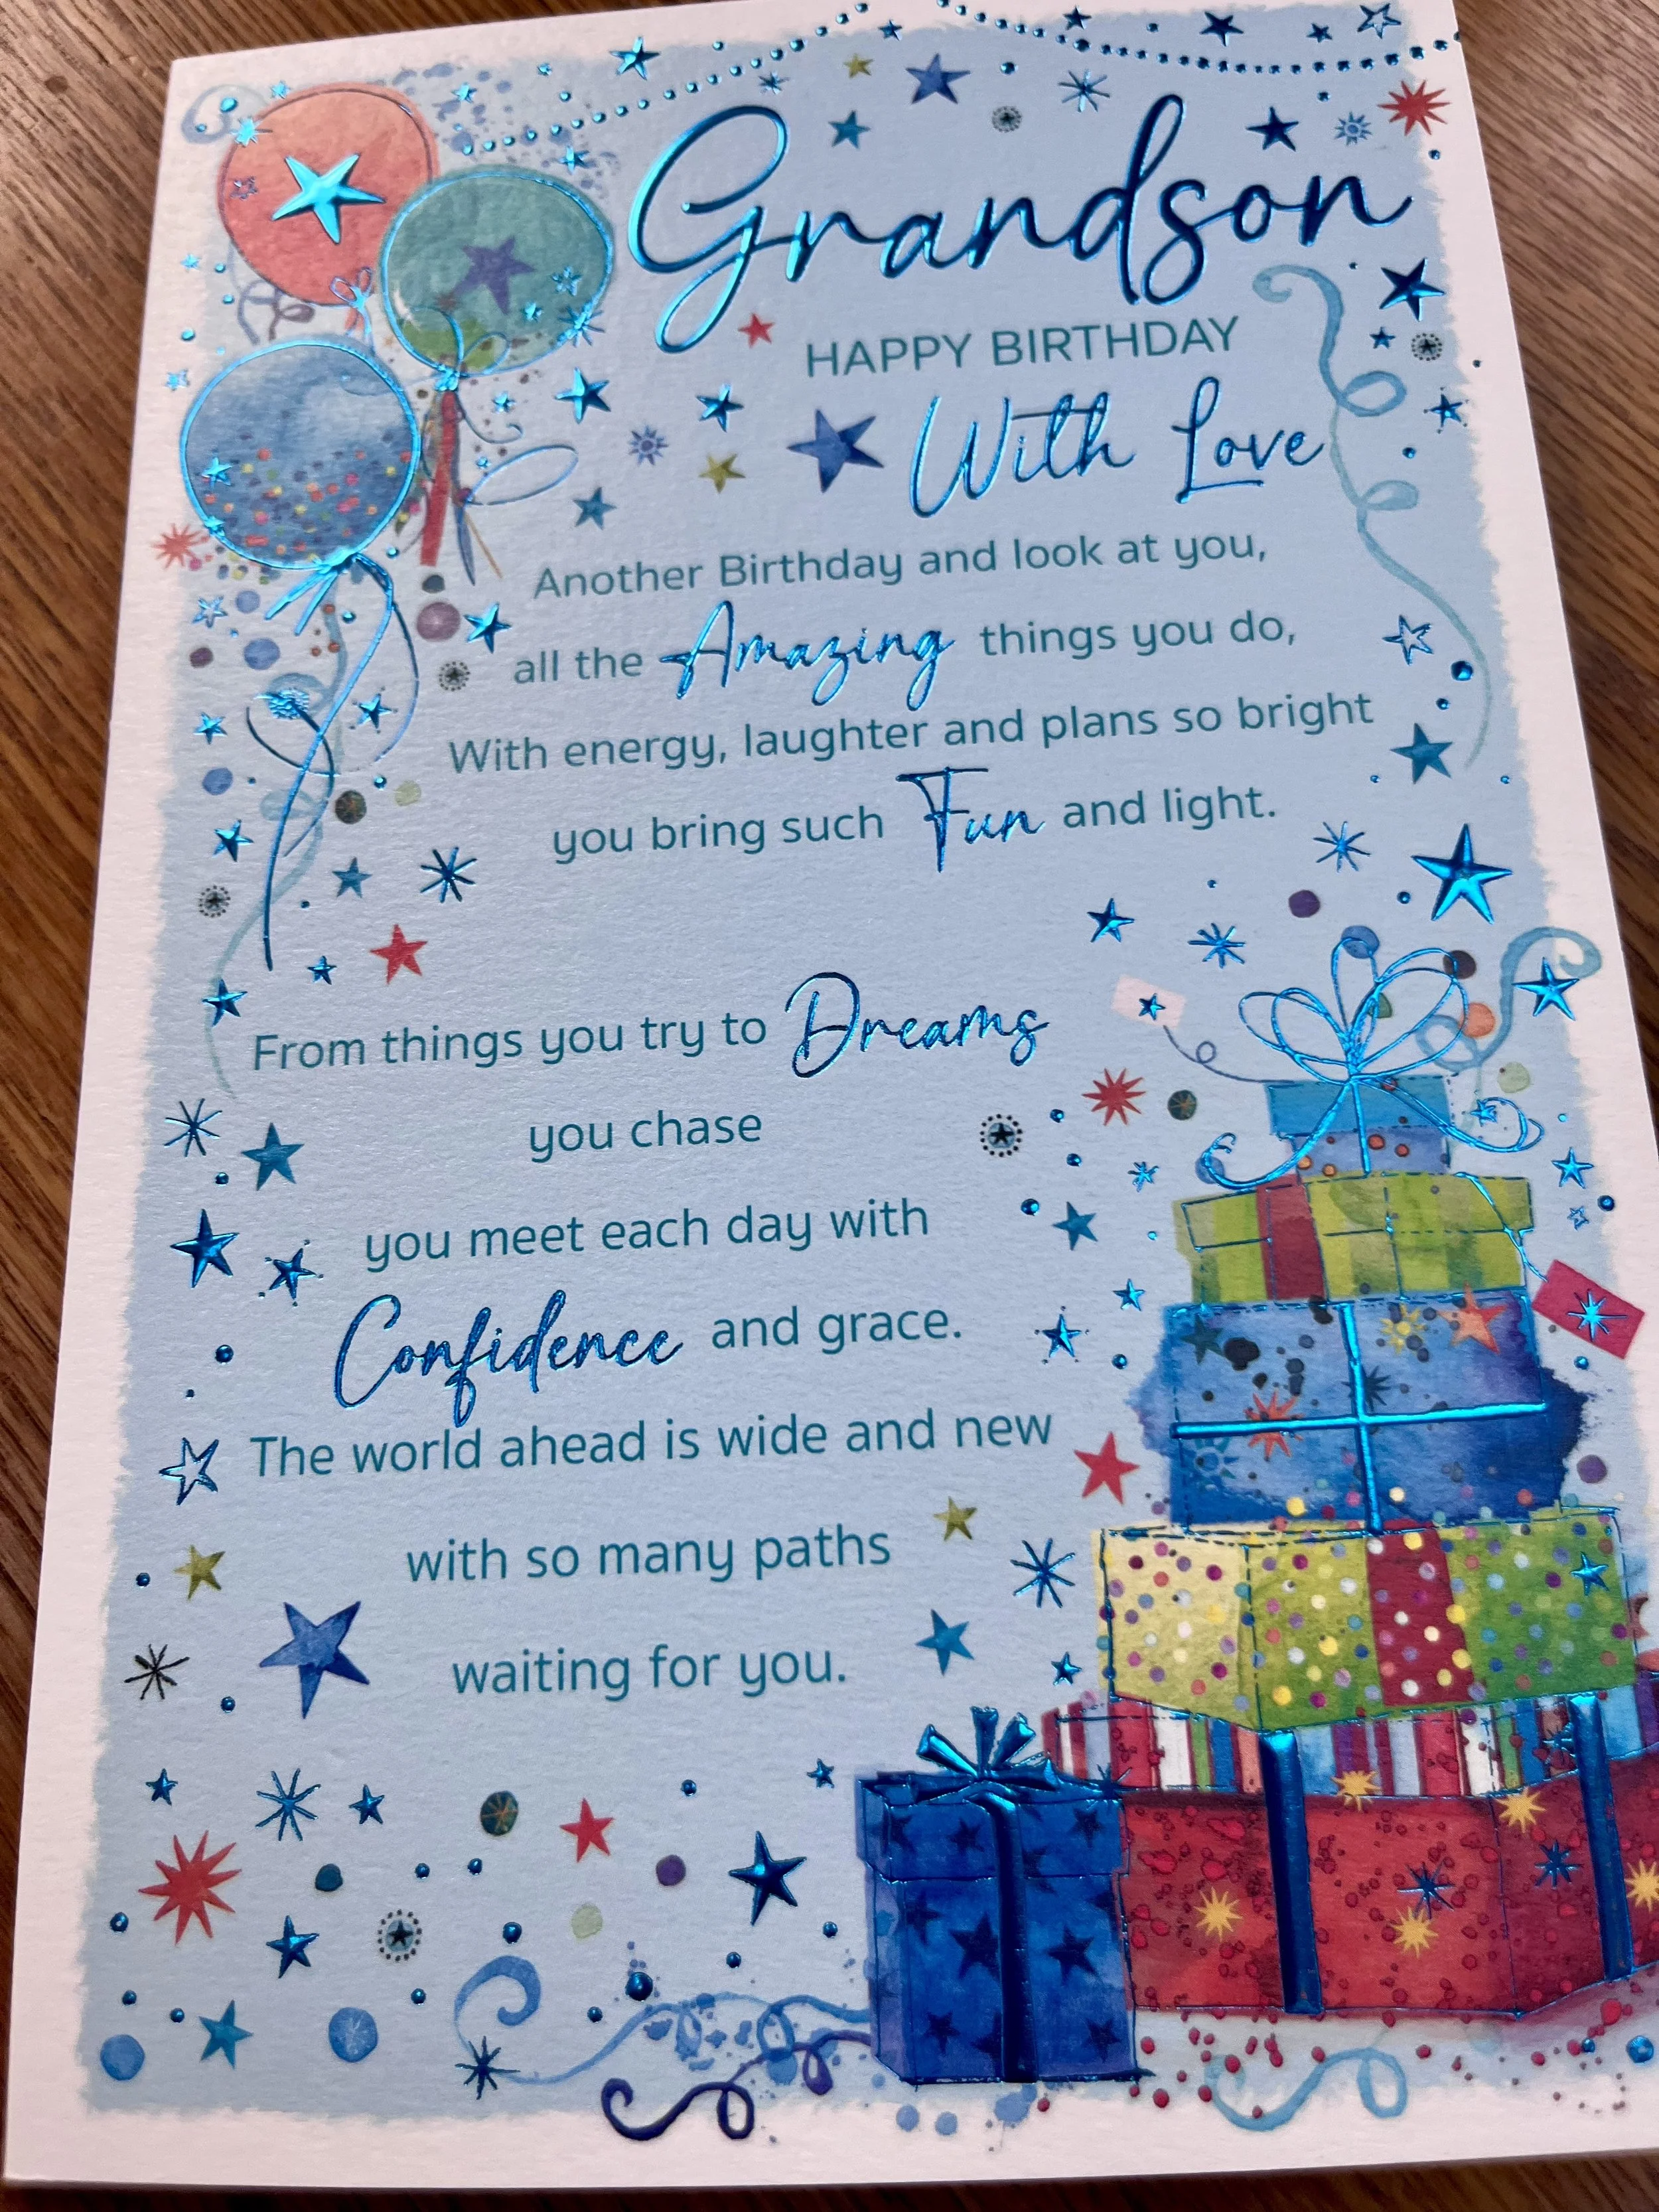 Grandson
HAPPY BIRTHDAY
With Love
Another Birthday and look at you,
all the Amazing things you do,
With energy, laughter and plans so bright
you bring such Fun and light.
From things you try to Dreams
you chase
you meet each day with
Confidence and grace.
The world ahead is wide and new
with so many paths
waiting for you.